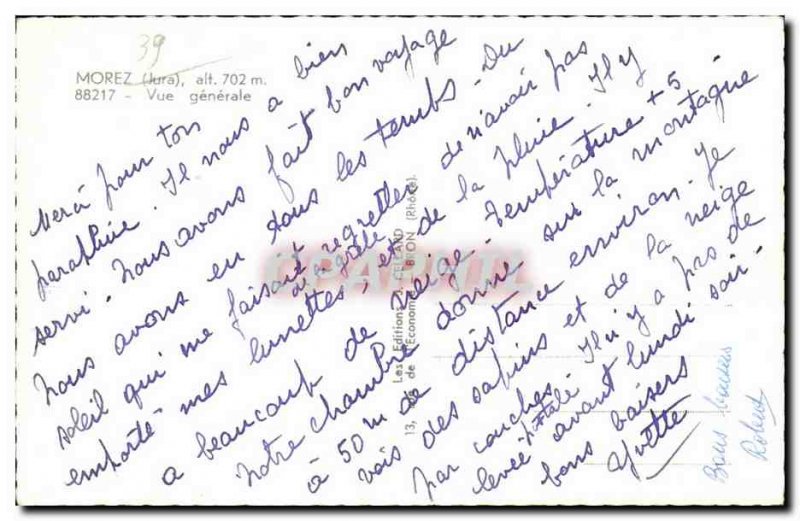 39
MOREZ (Jura), alt. 702 m.
88217 - Vue générale
Merci pour ton
paraphine. Il nous a bien
servi. Nous avons fait bon voyage
Nous avons eu tous les temps. Du
soleil qui me faisait regretter de n'avoir pas
emporté mes lunettes, de la grêle et de la pluie. Il y
a beaucoup de neige. Température + 5
Notre chambre donne sur la montagne
à 50 m de distance environ. Je
vois des sapins et de la neige
par couches. Il n'y a pas de
levée postale avant lundi soir.
bons baisers
Yvette
Bons baisers
Robert
Les Editions J. CELLARD
13, de l'Economie BRON (Rhône).
CPAPHIL